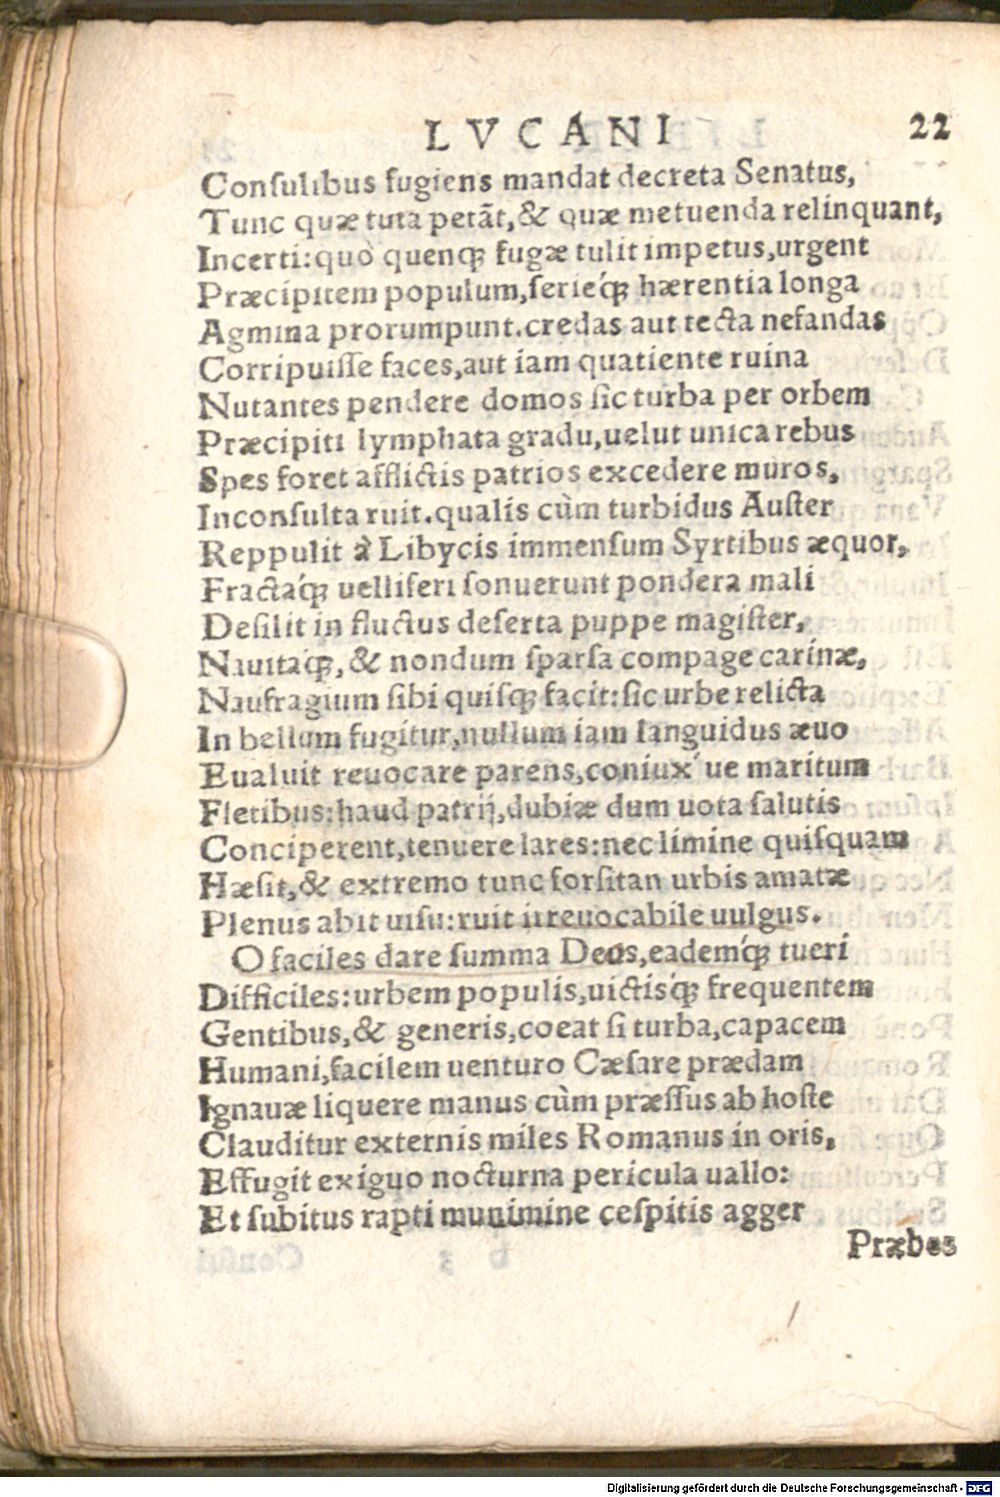 LVCANI 22
Conſulibus fugiens mandat decreta Senatus,
Tunc quæ tuta petāt,& quæ metuenda relinquant,
Incerti:quò quenqꝫ fugæ tulit impetus,urgent
Præcipitem populum,ſerieq́ꝫ hærentia longa
Agmina prorumpunt.credas aut tecta nefandas
Corripuiſſe faces,aut iam quatiente ruina
Nutantes pendere domos ſic turba per orbem
Præcipiti lymphata gradu,uelut unica rebus
Spes foret afflictis patrios excedere muros,
Inconſulta ruit.qualis cùm turbidus Auſter
Reppulit à Libycis immenſum Syrtibus æquor,
Fractaq́ꝫ ueliferi ſonuerunt pondera mali
Deſilit in fluctus deſerta puppe magiſter,
Nauitaqꝫ,& nondum ſparſa compage carinæ,
Naufragium ſibi quiſqꝫ facit:ſic urbe relicta
In bellum fugitur,nullum iam languidus æuo
Eualuit reuocare parens,coniux ́ue maritum
Fletibus:haud patrij,dubiæ dum uota ſalutis
Conciperent,tenuere lares:nec limine quiſquam
Hæſit,& extremo tunc forſitan urbis amatæ
Plenus abit uiſu:ruit irreuocabile uulgus.
O faciles dare ſumma Deos,eademq́ꝫ tueri
Difficiles:urbem populis,uictisq́ꝫ frequentem
Gentibus,& generis,coeat ſi turba,capacem
Humani,facilem uenturo Cæſare prædam
Ignauæ liquere manus cùm præſſus ab hoſte
Clauditur externis miles Romanus in oris,
Effugit exiguo nocturna pericula uallo:
Et ſubitus rapti munimine ceſpitis agger
Præbes
Digitalisierung gefördert durch die Deutsche Forschungsgemeinschaft - DFG